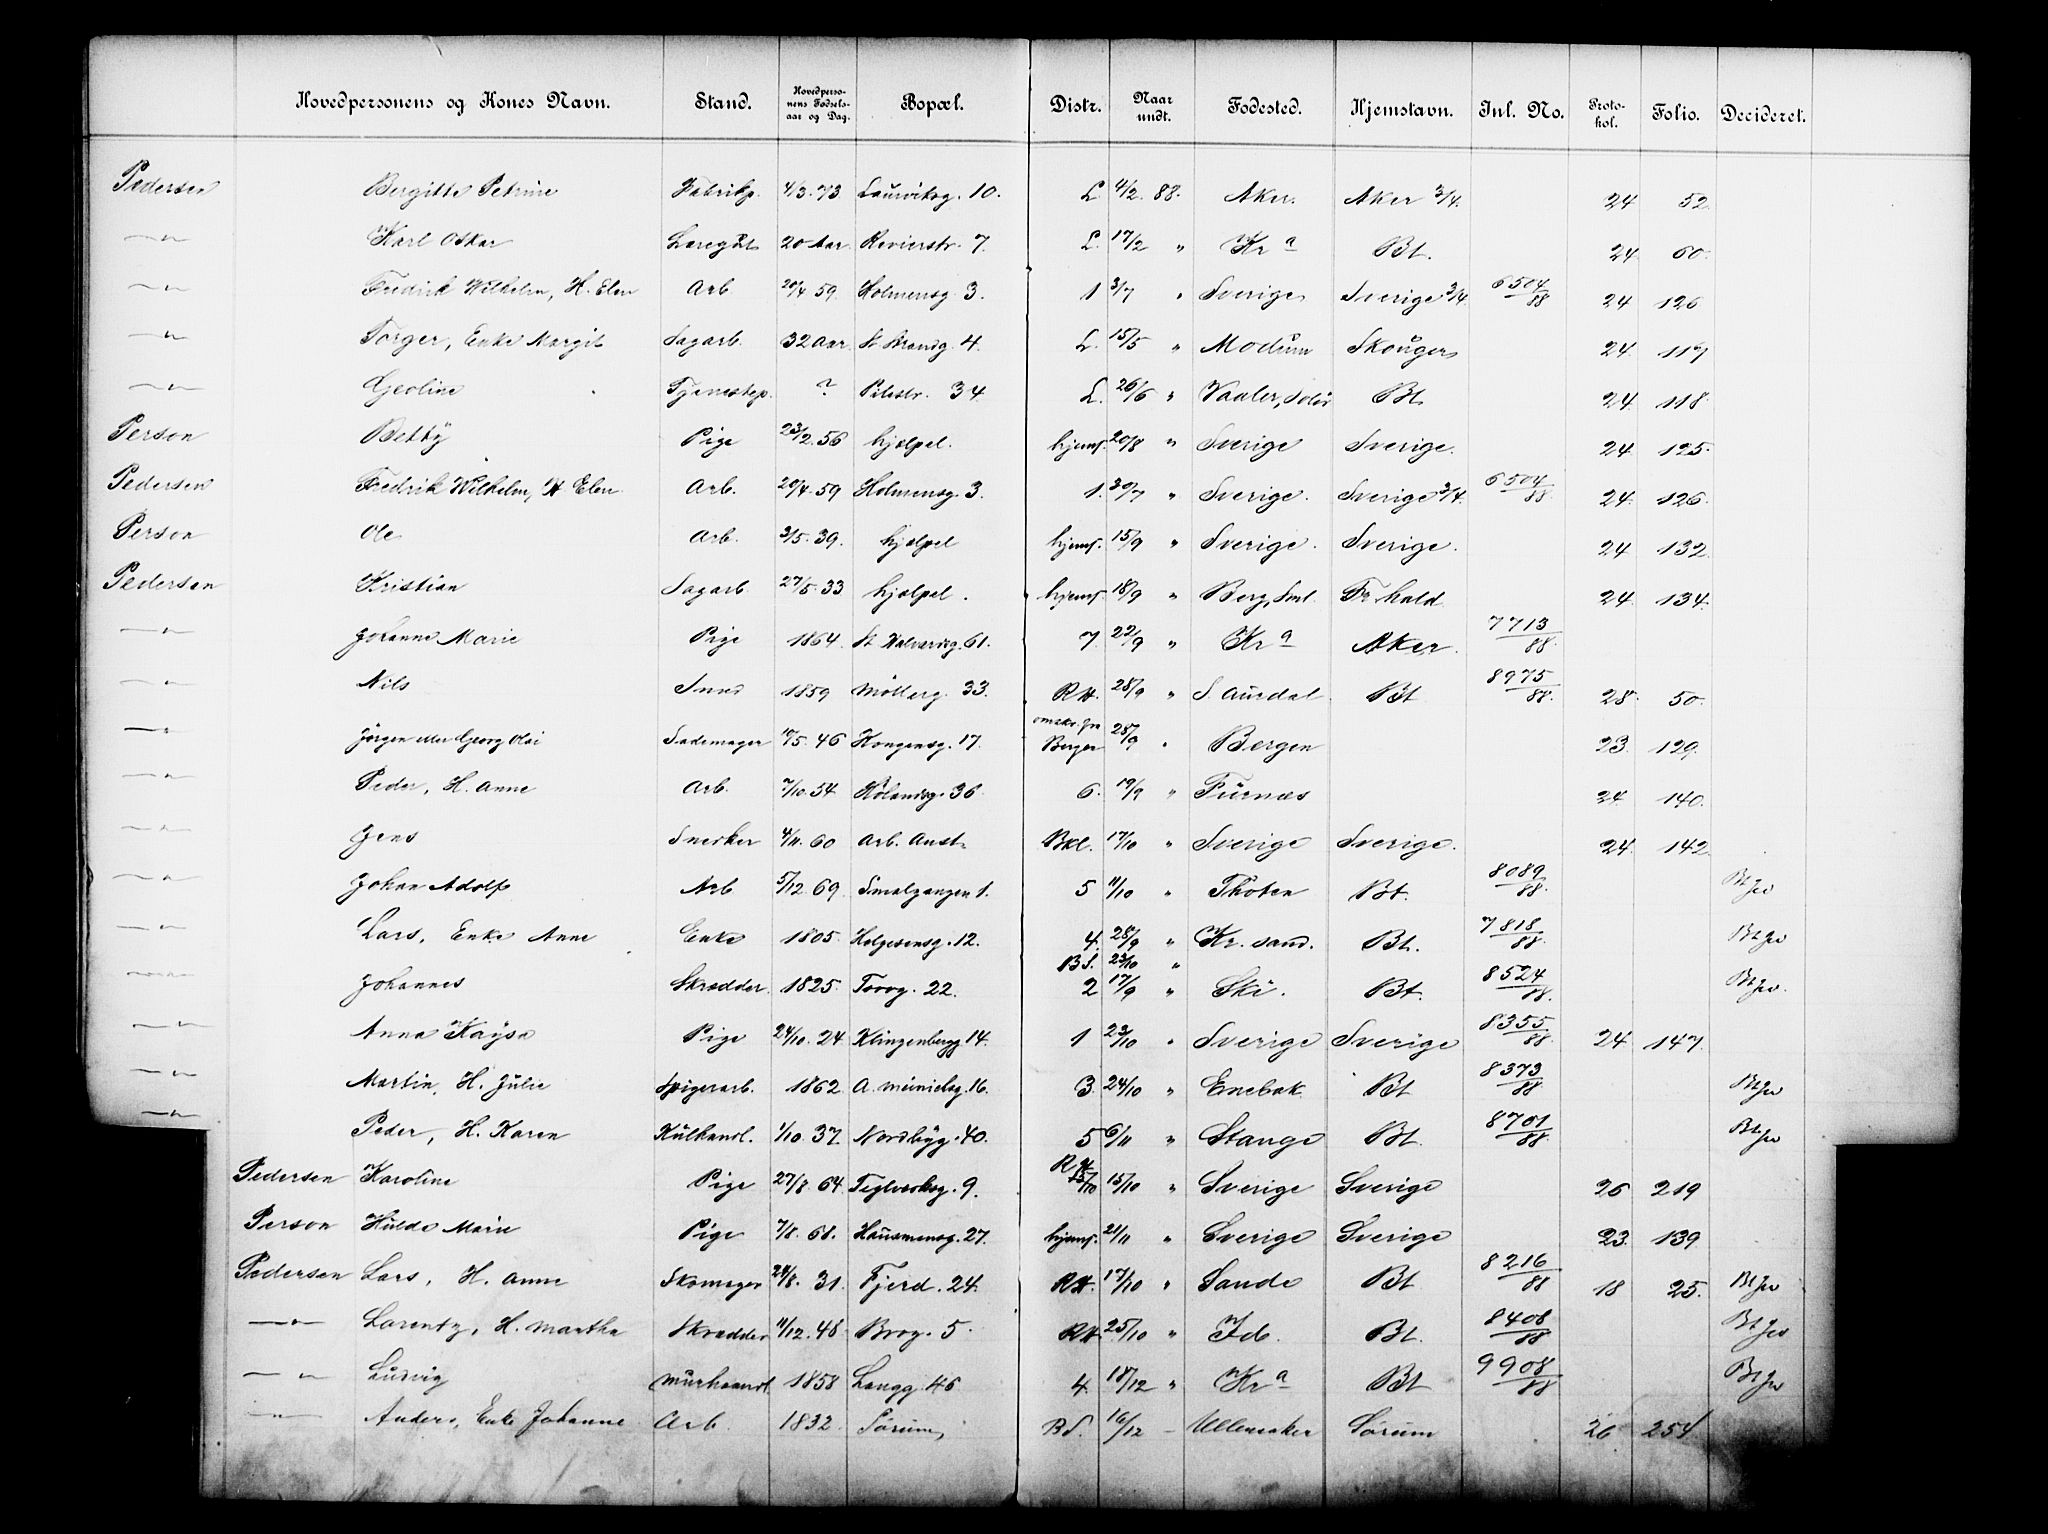 Hovedpersonens og Kones Navn. Stand. Hovedpersonens Fødselsaar og Dag. Bopæl. Distr. Naar undt. Fødested. Hjemstavn. Inl. No. Protokol. Folio. Decideret.
Pedersen Bergitte Petrine Fabrikp. 4/3. 73 Laurviksg. 10. L 4/2. 88. Aker. Aker 3/4. 24 52.
—"— Karl Oskar 20 Aar Revierstr. 7. L. 17/2 " Kra Bt. 24 60.
—"— Fredrik Wilhelm, H. Elen Arb. 20/4 59. Holmensg. 3. 1 3/7 " Sverige Sverige 3/4 6504/88 24 126
—"— Torger, Enke Margit Sagarb. 32 Aar. St Strandg. 4. L. 15/5 " Modum Skouger 24 117
—"— Geoline Tjenestep. ? Pilestr. 34 L. 26/6 " Vaaler, Solør Bt. 24 118.
Person Betty Pige 23/2. 56 hjælpel. hjemf. 20/8 " Sverige Sverige. 24 125.
Pedersen Fredrik Wilhelm, H Elen Arb. 20/4. 59 Holmensg. 3. 1. 30/7 " Sverige. Sverige 3/4. 6504/88. 24 126.
Person Ole Arb. 3/5. 39. hjælpel hjemf. 15/9 " Sverige. Sverige. 24 132.
Pedersen Kristian Sagarb 27/5. 33 hjælpel. hjemf. 18/9 " Berg, Sml. Fr.hald 24 134.
—"— Johanne Marie Pige 1864. St Halvardsg. 61. 7. 22/9 " Kra Aker. 7713/88.
—"— Nils 1859 Møllerg. 33. RH. 28/9 " S. Aurdal. Bt 8975/88. 28 50.
—"— Jørgen eller Georg Olai Sademager 17/5. 46 Kongensg. 17. omskr. fra Bergen 28/9 " Bergen 23. 129.
—"— Peder, H. Anne Arb. 7/10. 54 Hølandsg. 36. 6. 19/9 " Furnæs 24. 140.
—"— Jens Snerker 4/11. 60 Arb. Anst. Bkl. 17/10 " Sverige Sverige. 24. 142.
—"— Johan Adolf Arb 5/12. 69. Smalgangen 1. 5 11/10 " Thoten Bt. 8089/88. Bt
—"— Lars, Enke Anne Enke 1805. Holgesensg. 12. 4. 28/9 " Kr. sand. Bt. 7818/88. Bt
—"— Johannes Skrædder. 1825. Torvg. 22. BS. 23/10 " 2 17/9 " Ski. Bt. 8524/88. Bt
—"— Anna Kaysa Pige 24/10. 24 Klingenbergg 14. 1 23/10 " Sverige Sverige 8355/88 24 147.
—"— Martin, H. Julie Spigerarb. 1862. 3. 24/10 " Enebak Bt 8373/88 Bt
—"— Peder, H. Karen Kulhandl. 1/10. 37. Nordbyg. 40. 5 6/11 " Stange Bt. 8701/88. Bt
Pedersen Karoline Pige 27/8. 64. Teglverksg. 9. RH 15/10 " Sverige Sverige 26 219
Person Hulda Marie Pige 7/8. 68. Hausmansg. 27. hjemf. 21/11 " Sverige Sverige 23. 139
Pedersen Lars, H. Anne Skomager 24/8. 31. Fjerd. 24. RH. 17/10 " Sande Bt 8216/88 18 25. Bt
—"— Larentz, H. Martha Skrædder 11/12. 48 Brog. 5. RH. 25/10 " Id. Bt. 8408/88 Bt
—"— Ludvig Murhaandl. 1858 Langg. 46 4. 18/12 " Kra Bt 9908/88 Bt
—"— Anders, Enke Johanne Arb. 1832. Sørum, BS. 16/12 — Ullensaker Sørum 26 254